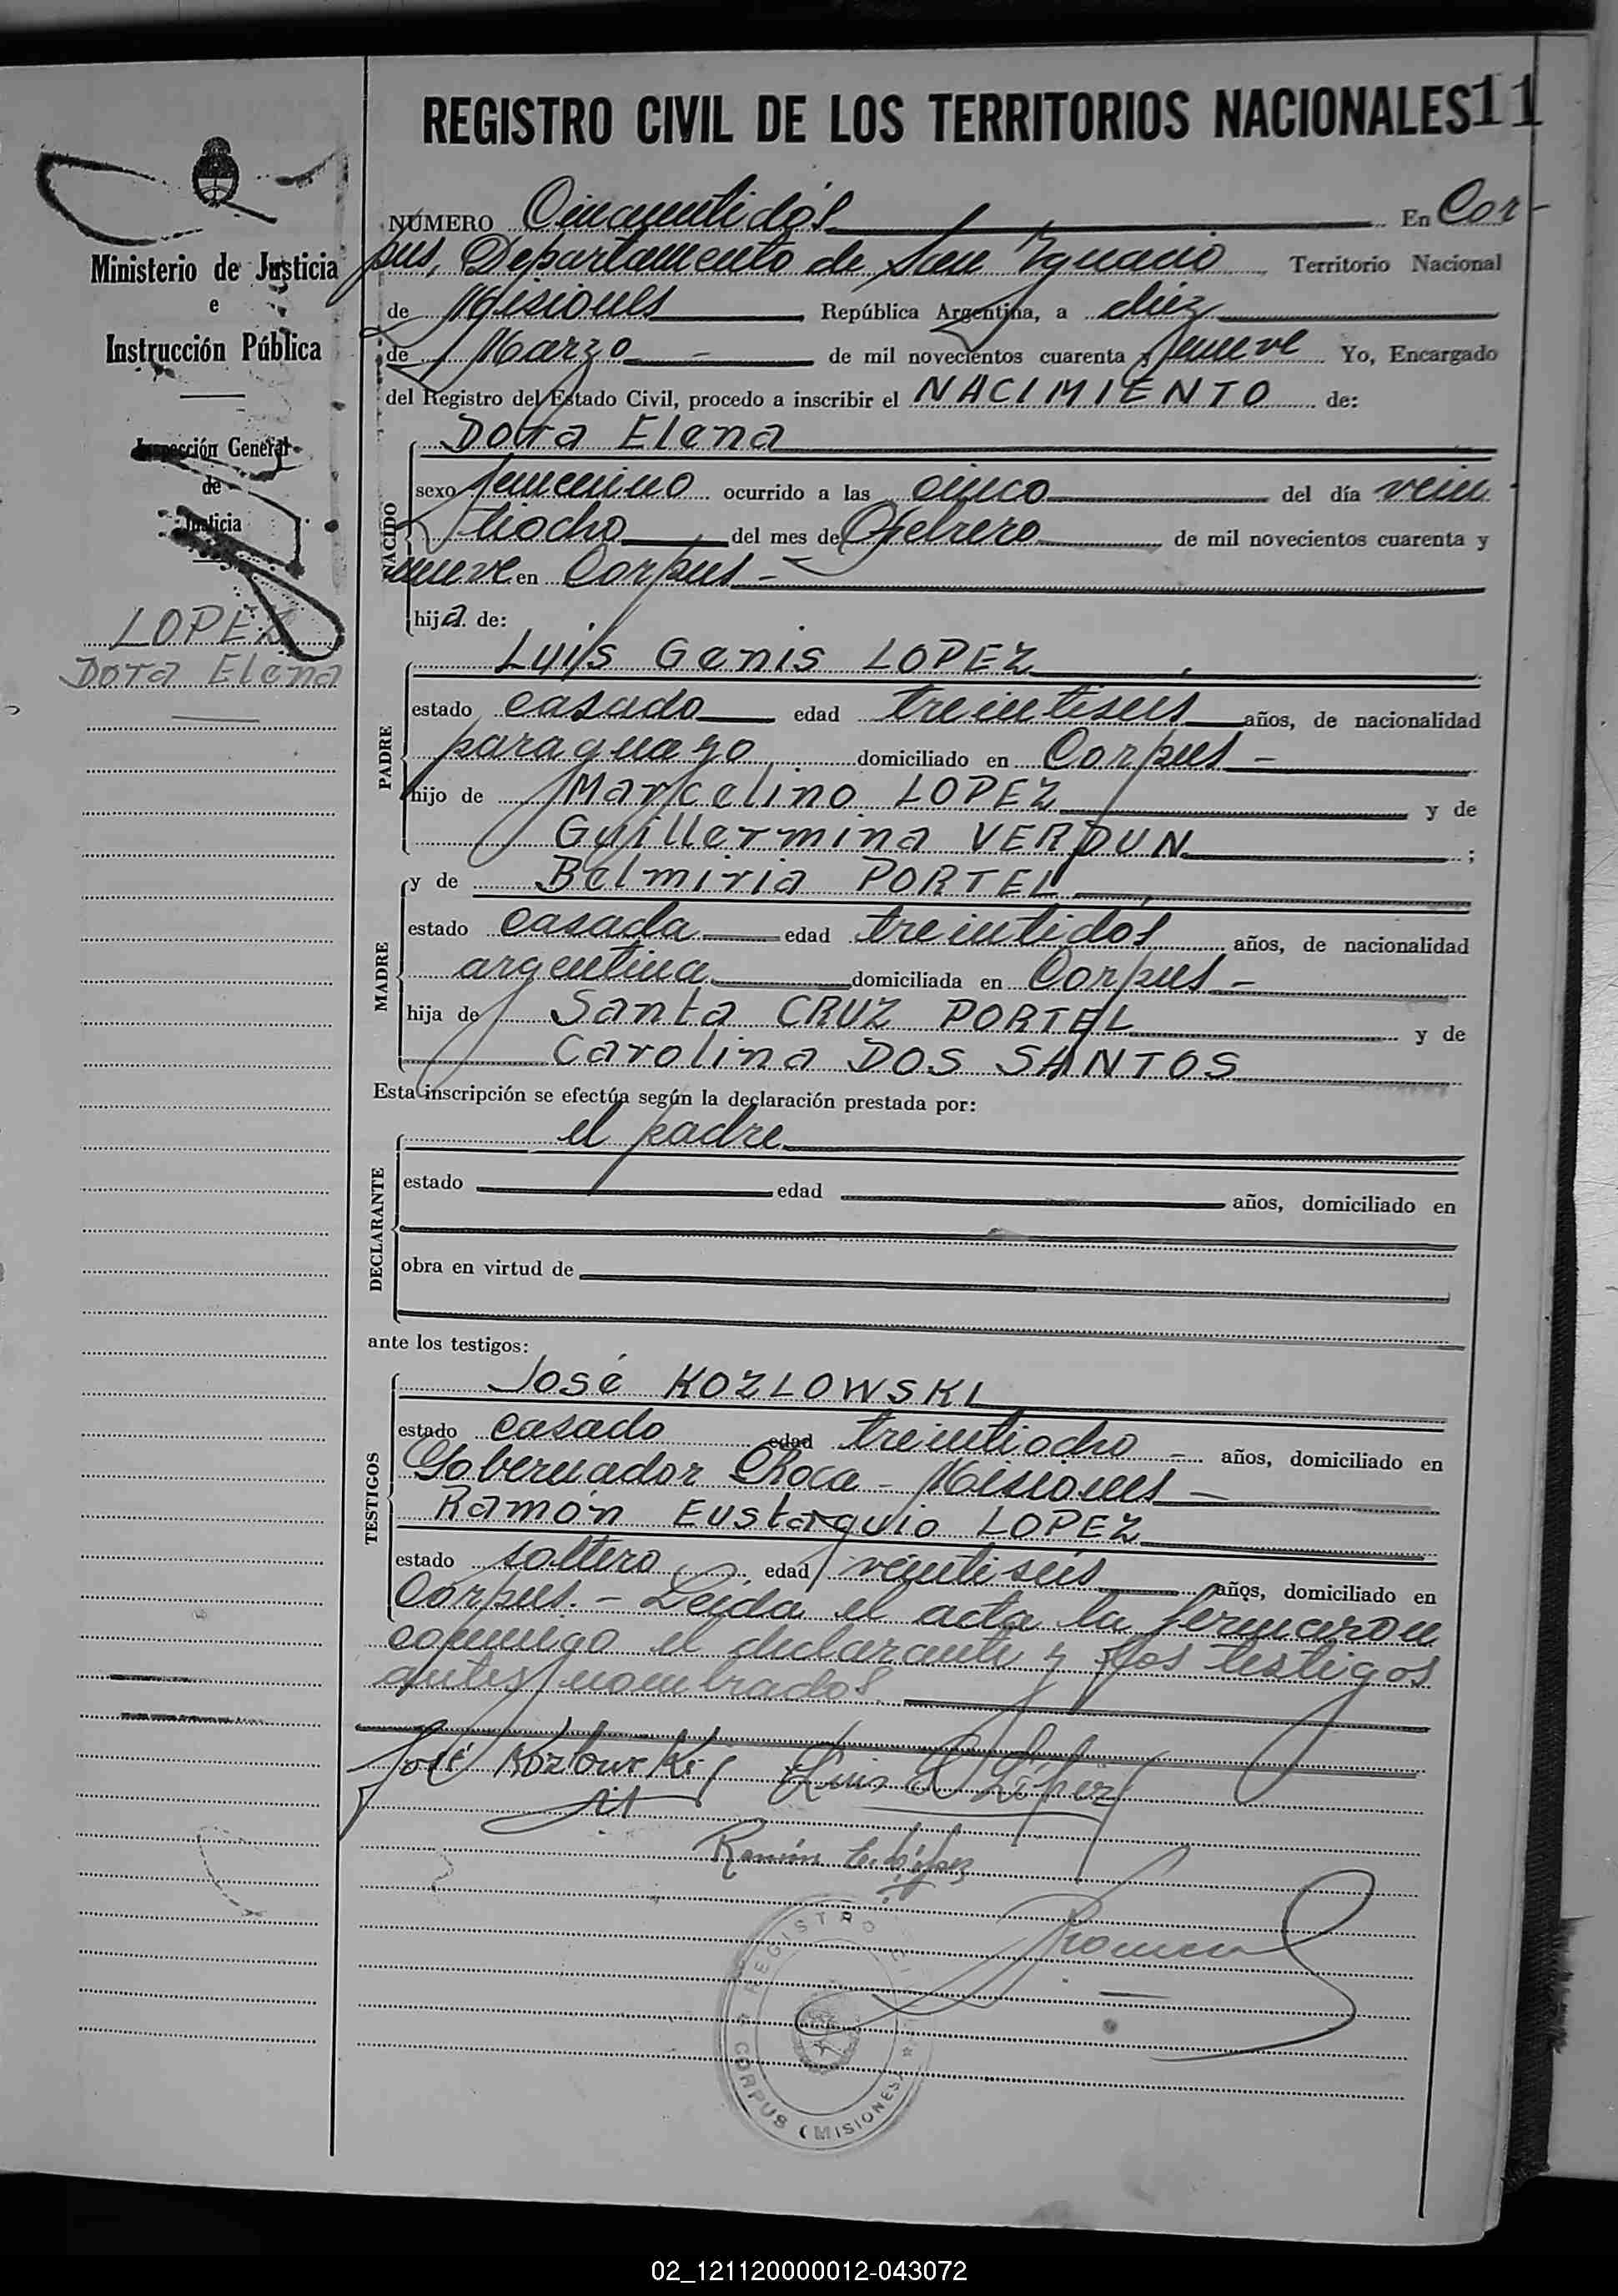 REGISTRO CIVIL DE LOS TERRITORIOS NACIONALES 11
Ministerio de Justicia
e
Instrucción Pública
Inspección General
de
Justicia
LOPEZ
Dora Elena
NÚMERO Cincuentidós En Cor-
pus, Departamento de San Ignacio Territorio Nacional
de Misiones República Argentina, a diez
de Marzo - de mil novecientos cuarenta y nueve Yo, Encargado
del Registro del Estado Civil, procedo a inscribir el NACIMIENTO de:
NACIDO
Dora Elena
sexo femenino ocurrido a las cinco del día vein
tiocho del mes de Febrero de mil novecientos cuarenta y
nueve en Corpus -
hija de:
PADRE
Luis Genis LOPEZ
estado casado edad treintiseis años, de nacionalidad
paraguayo domiciliado en Corpus -
hijo de Marcelino LOPEZ y de
Guillermina VERDUN ;
MADRE
y de Belmiria PORTEL
estado casada edad treintidós años, de nacionalidad
argentina domiciliada en Corpus -
hija de Santa CRUZ PORTEL y de
Carolina DOS SANTOS
Esta inscripción se efectúa según la declaración prestada por:
DECLARANTE
el padre
estado edad años, domiciliado en
obra en virtud de
ante los testigos:
TESTIGOS
José KOZLOWSKI
estado casado edad treintiocho - años, domiciliado en
Gobernador Roca - Misiones -
Ramón Eustaquio LOPEZ
estado soltero edad veintiseis años, domiciliado en
Corpus. - Leída el acta la firmaron
conmigo el declarante y los testigos
antes nombrados.
José Kozlowski Luis G López
Ramón E. López
REGISTRO CIVIL
CORPUS (MISIONES)
02_121120000012-043072